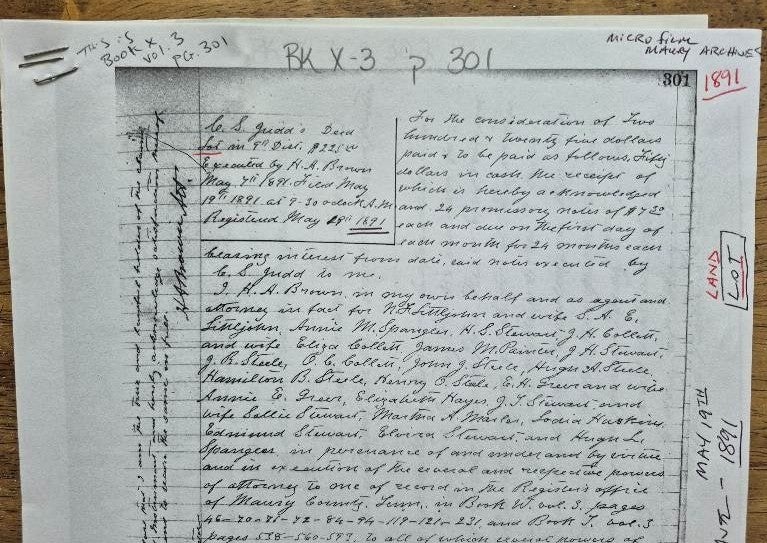 THIS IS
BOOK X
VOL. 3
PG. 301
BK X-3 p 301
MICROFILM
MAURY ARCHIVES
301
1891
C. S. Judd's Deed
Lot in 9th Dist. $225.00
Executed by H. A. Brown
May 7th 1891. Filed May
19th 1891. at 9-30 oclock A.M.
Registered May 29th 1891
For the consideration of Two
hundred & twenty five dollars
paid & to be paid as follows, Fifty
dollars in cash the receipt of
which is hereby acknowledged
and 24 promissory notes of $7 30
each and due on the first day of
each month for 24 months each
bearing interest from date, said notes executed by
C. S. Judd to me.
I, H. A. Brown, in my own behalf and as agent and
attorney in fact for N. F. Littlejohn and wife S. A. E.
Littlejohn, Annie M. Spangler, H. S. Stewart, J. H. Collett,
and wife Eliza Collett, James M. Painter, J. H. Stewart,
J. B. Steele, O. C. Collett, John J. Steele, Hugh A. Steele,
Hamilton B. Steele, Henry O. Steele, E. H. Greer and wife
Annie E. Greer, Elizabeth Hayes, J. T. Stewart and
wife Sallie Stewart, Martha A. Marler,
Edmund Stewart, Elvira Stewart, and Hugh L.
Spangler in persuance of and under and by virtue
and in execution of the several and respective powers
of attorney to me of record in the Register's office
of Maury County, Tenn., in Book W. vol. 3. pages
46-70-71-72-84-94-119-121-231, and Book T. vol. 3
pages 558-560-593, to all of which several powers of
H A Brown Att.
LAND
LOT
MAY 19TH
1891